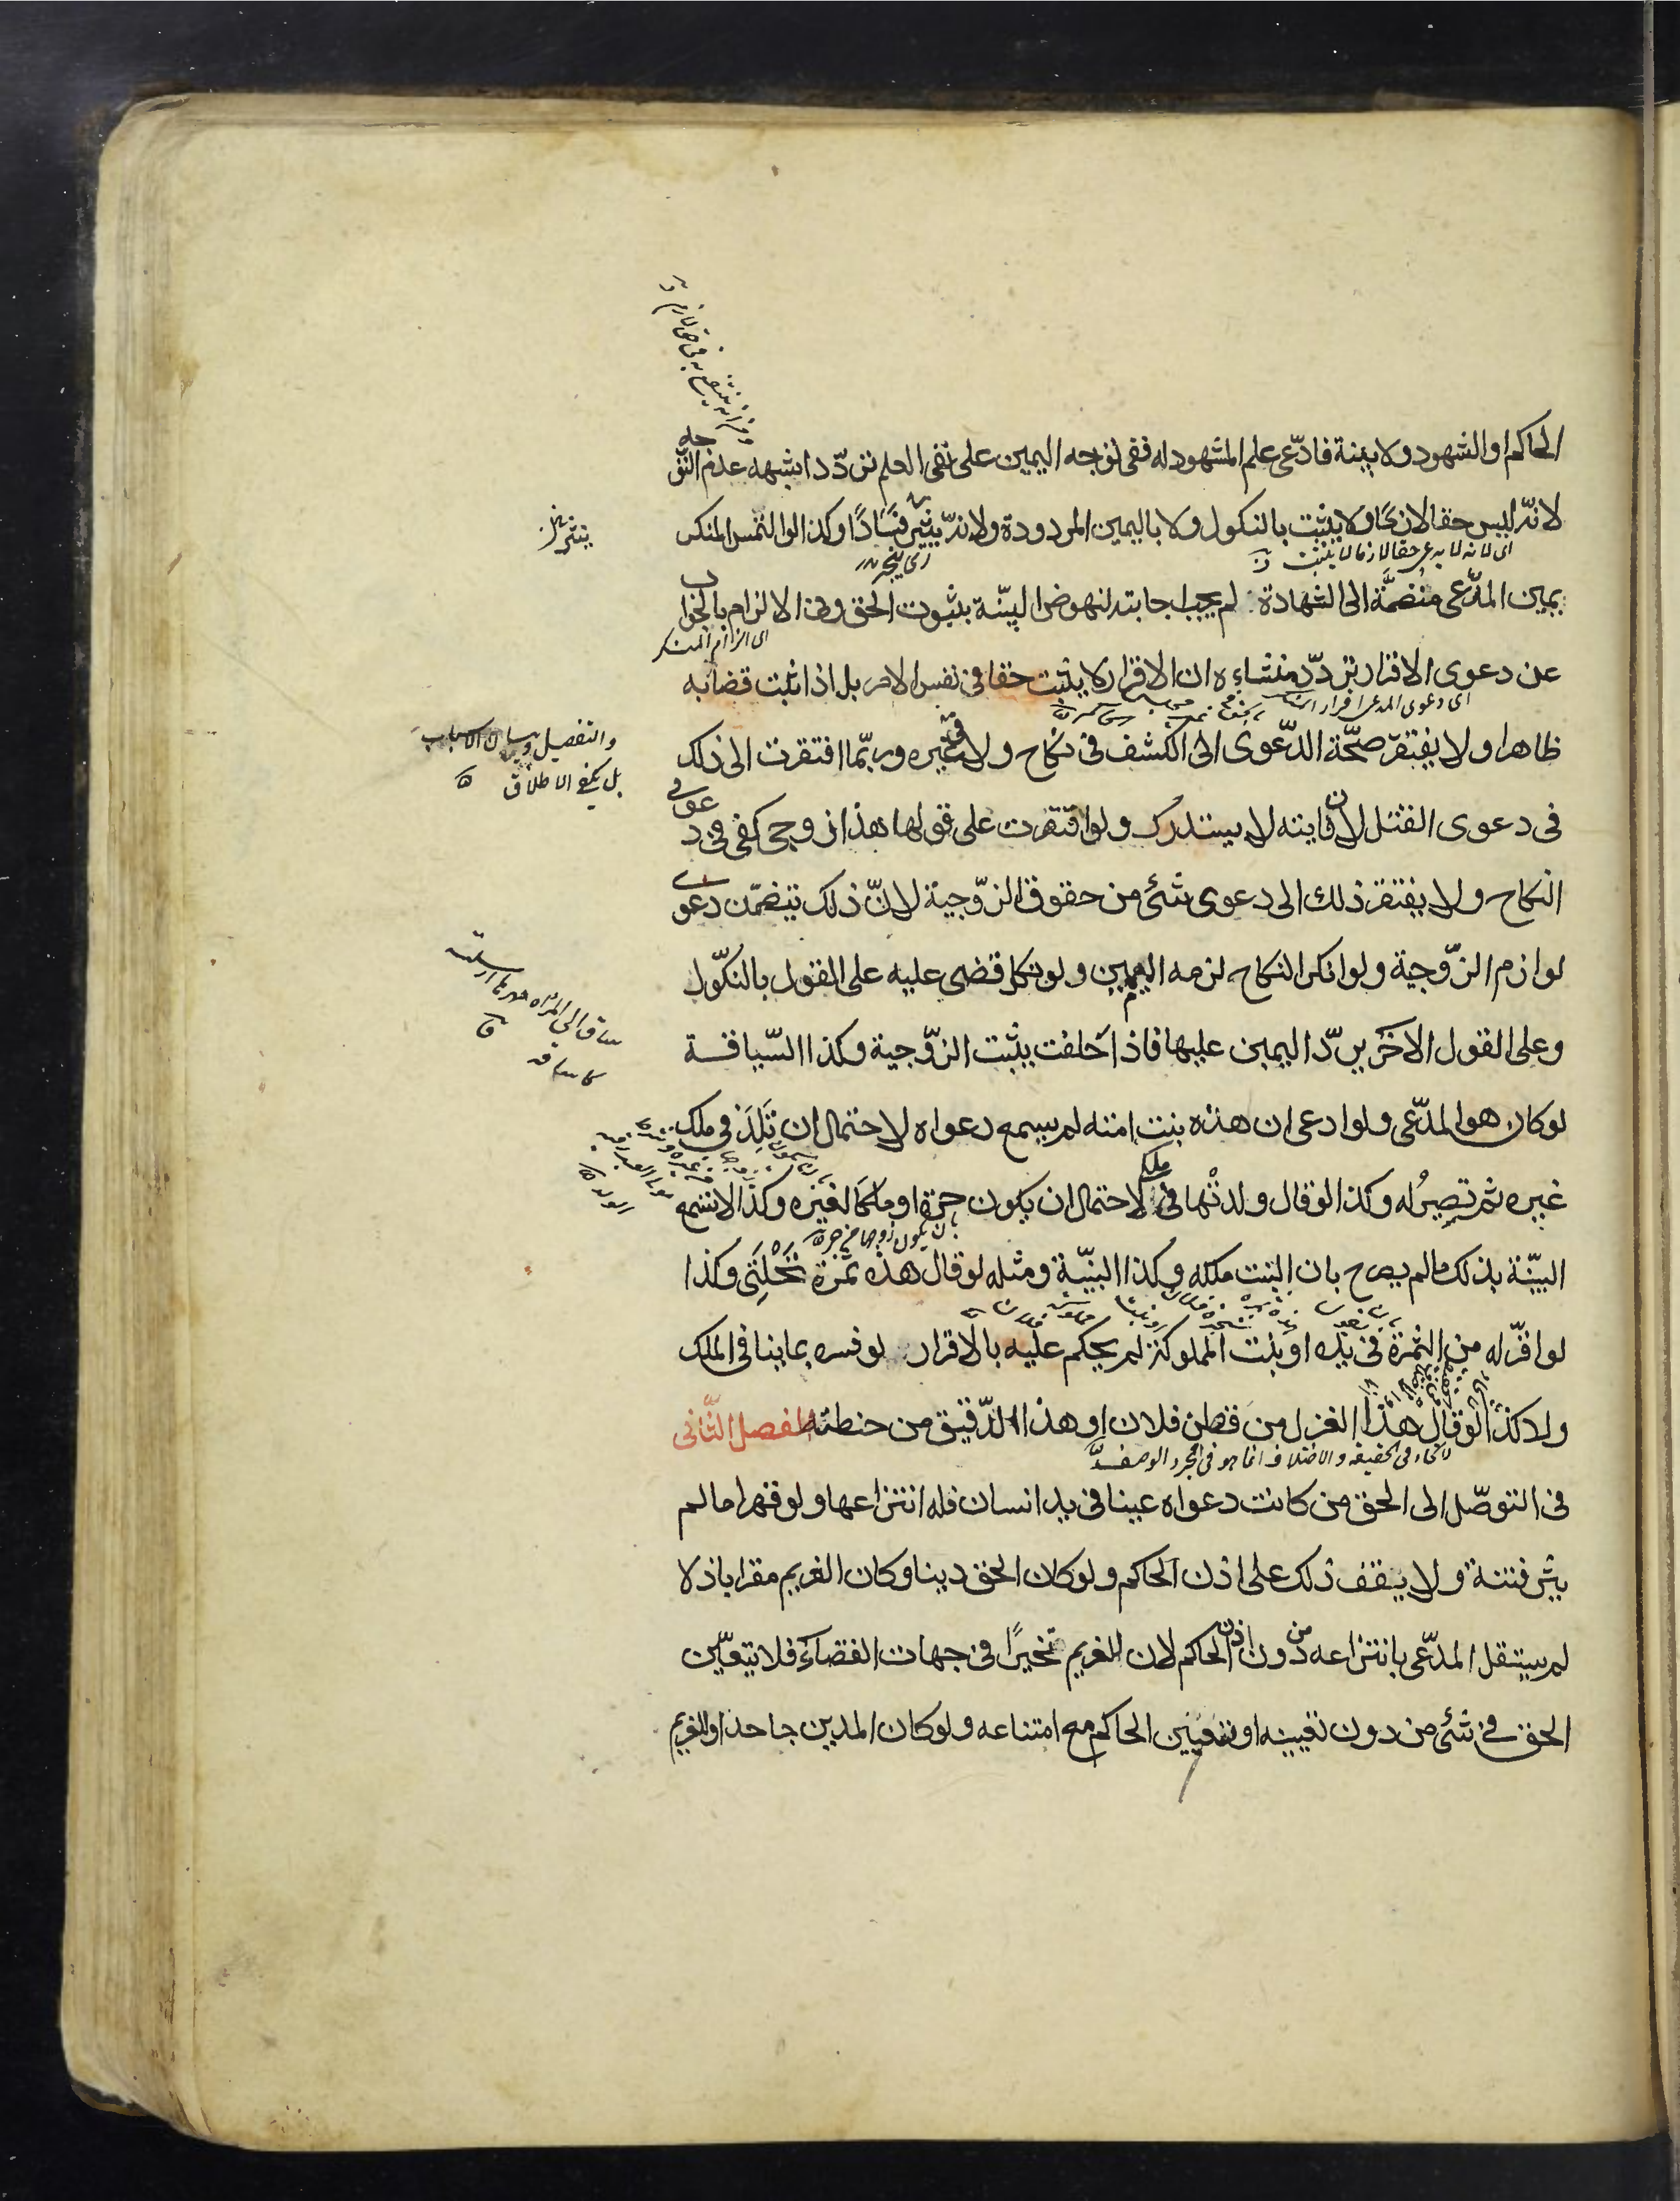 الحاكم او الشهود ولا بينة فادّعى علم المشهود له ففى توجه اليمين على نفى العلم تردّد اشبهه عدم التوجه
لانّه ليس حقا لازمًا ولا يثبت بالنكول ولا باليمين المردودة ولانّه يثير فسادًا وكذا لو التمس المنكر
اى لانه لا يدعى حقا لازما لا يثبت
اى ينجر
يمين المدّعى منضمّة الى الشهادة لم يجب اجابته لنهوض البيّنة بثبوت الحق وفى الالزام بالجواب
اى الزام المنكر
عن دعوى الاقرار تردّد منشاءه ان الاقرار لا يثبت حقا فى نفس الامر بل اذا ثبت قضا به
اى دعوى المدعى اقرار
ظاهرا ولا يفتقر صحّة الدّعوى الى الكشف فى نكاح ولا فى غيره وربّما افتقرت الى ذلك
والتفصيل وبيان الاسباب
بل يكفى الاطلاق
فى دعوى القتل لان فايته لا يستدرك ولو اقتصرت على قولها هذا زوجى كفى فى دعوى
النكاح ولا يفتقر ذلك الى دعوى شئ من حقوق الزّوجية لانّ ذلك يتضمّن دعوى
لوازم الزّوجية ولو انكر النكاح لزمه اليمين ولو نكل قضى عليه على القول بالنكّول
وعلى القول الاخر يردّ اليمين عليها فاذا حلفت يثبت الزّوجية وكذا السّياقة
لو كان هو المدّعى ولو ادعى ان هذه بنت امته لم يسمع دعواه لاحتمال ان تلد فى ملك
غيره ثم تصير له وكذا لو قال ولدتها فى ملكى لاحتمال ان يكون حرة او ملكا لغيره وكذا لا تسمع
بان يكون زوجها حر
البيّنة بذلك مالم يصرح بان البنت ملكه وكذا البيّنة ومثله لو قال هذه ثمرة نخلتى وكذا
لو اقرّ له من الثمرة فى يده او بنت المملوكة لم يحكم عليه بالاقرار لو فسره بما ينافى الملك
ولا كذا لو قال هذا الغزل من قطن فلان او هذا الدّقيق من حنطته الفصل الثّانى
لاتحاد فى الحقيقه والاختلاف انما هو فى مجرد الوصف
فى التوصّل الى الحق من كانت دعواه عينا فى يد انسان فله انتزاعها ولو قهرا مالم
يثر فتنة ولا يقف ذلك على اذن الحاكم ولو كان الحق دينا وكان الغريم مقرا باذلا
لم يستقل المدّعى بانتزاعه من دون اذن الحاكم لان للغريم تخييرًا فى جهات القضاء فلا يتعيّن
الحق فى شئ من دون تعيينه او تعيين الحاكم مع امتناعه ولو كان المدين جاحدا وللغريم